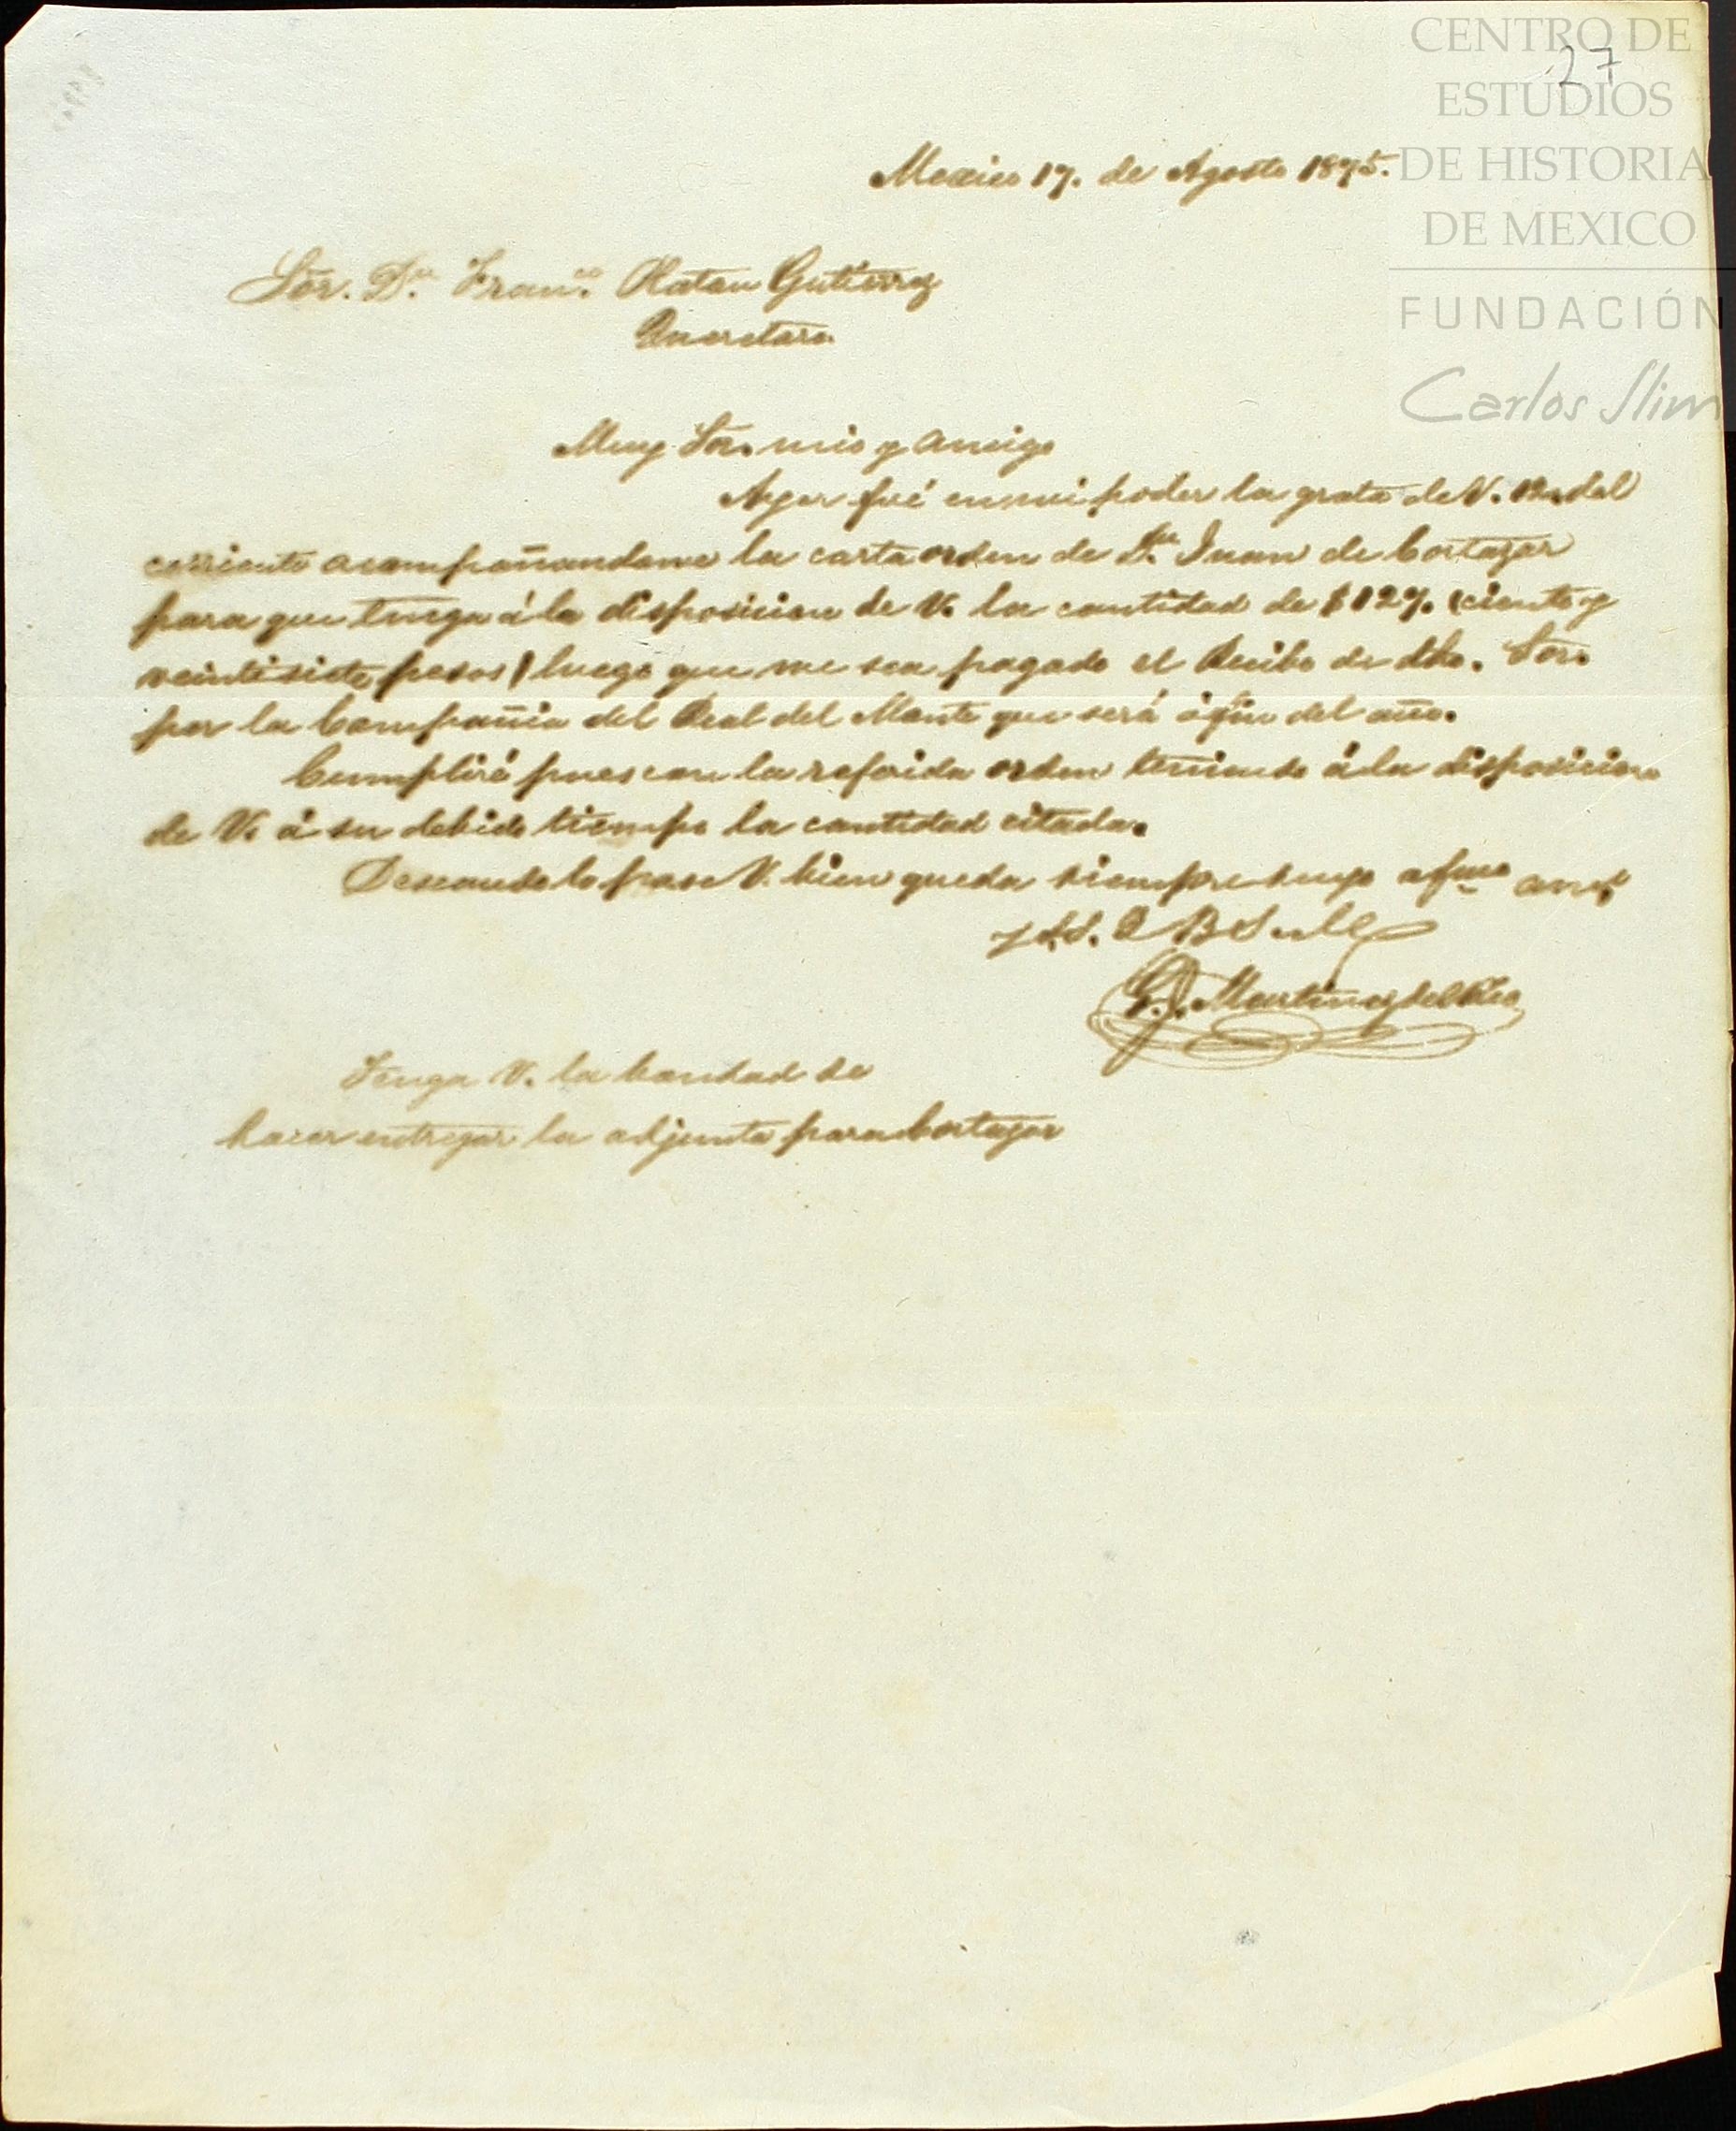 CENTRO DE
ESTUDIOS
DE HISTORIA
DE MEXICO
FUNDACIÓN
Carlos Slim
27
Mexico 17. de Agosto 1875.
Sor. Dn. Franco. Platon Gutierrez
Queretaro
Muy Sor. mio y amigo
Ayer fué en mi poder la grata de V. 12. del
corriente acompañandome la carta orden de Dn. Juan de Cortazar
para que tenga á la disposicion de V. la cantidad de $127. (ciento y
veintisiete pesos) luego que me sea pagado el Recibo de dho. Sor.
por la Compañia del Real del Monte que será á fin del año.
Cumpliré pues con la referida orden teniendo á la disposicion
de V. á su debido tiempo la cantidad citada.
Deseando lo pase V. bien queda siempre suyo afmo amo
y S.S. Q B S M
G. Martinez del Rio
Tenga V. la bondad de
hacer entregar la adjunta para Cortazar